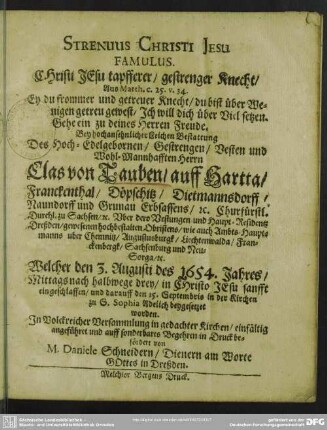 STRENUUS CHRISTI JESU
FAMULUS.
CHristi JEsu tapfferer/ gestrenger Knecht/
Aus Matth. c. 25. v. 34.
Ey du frommer und getreuer Knecht/ du bist über We-
nigen getreu gewest/ Ich will dich über Viel setzen.
Gehe ein zu deines Herren Freude.
Bey hochansehnlicher Leichen Bestattung
Des Hoch-Edelgebornen/ Gestrengen/ Vesten und
Wohl-Mannhafften Herrn
Clas von Tauben/ auff Hartta/
Franckenthal/ Döpschitz/ Dietmannsdorff/
Naundorff und Grunau Erbsassens/ ꝛc. Churfürstl.
Durchl. zu Sachsen/ ꝛc. Uber dero Vestungen und Haupt-Residentz
Dreßden/ gewesenen hochbestalten Obristens/ wie auch Ambts-Haupt-
manns uber Chemnitz/ Augustusburgk/ Liechtenwalda/ Fran-
ckenbergk/ Sachsenburg und Neu-
Sorga/ ꝛc.
Welcher den 3. Augusti des 1654. Jahres/
Mittags nach halbwege drey/ in Christo JEsu sanfft
eingeschlaffen/ und darauff den 15. Septembris in der Kirchen
zu S. Sophia Adelich beygesetzet
worden.
In Volckreicher Versammlung in gedachter Kirchen/ einfältig
angeführet und auff sonderbares Begehren in Druck be-
fördert von
M. Daniele Schneidern/ Dienern am Worte
GOttes in Dreßden.
Melchior Bergens Druck.